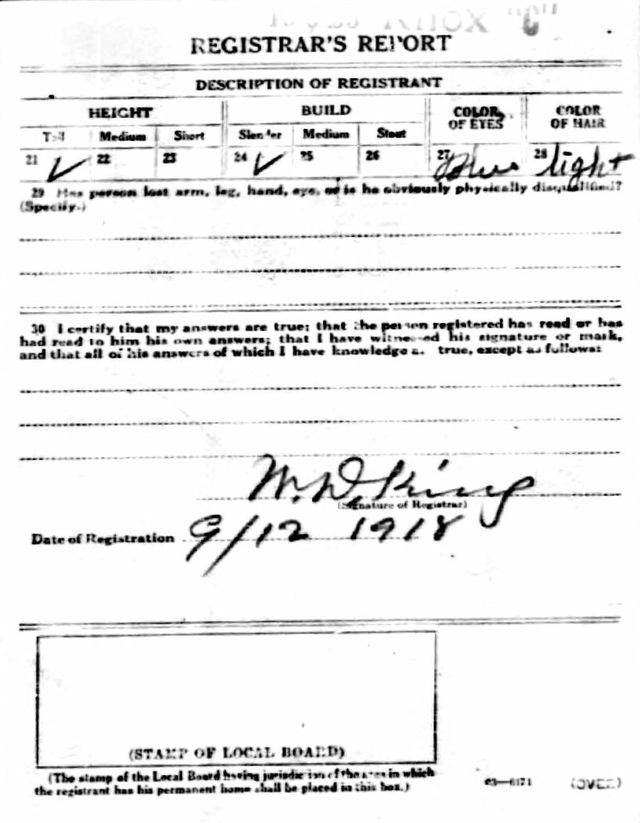 REGISTRAR'S REPORT
DESCRIPTION OF REGISTRANT
HEIGHT BUILD COLOR OF EYES COLOR OF HAIR
Tall Medium Short Slender Medium Stout
21 ✓ 22 23 24 ✓ 25 26 27 Blue 28 light
29 Has person lost arm, leg, hand, eye, or is he obviously physically disqualified?
(Specify.)
30 I certify that my answers are true; that the person registered has read or has
had read to him his own answers; that I have witnessed his signature or mark,
and that all of his answers of which I have knowledge are true, except as follows:
W. D. King
(Signature of Registrar)
Date of Registration 9/12 1918
(STAMP OF LOCAL BOARD)
(The stamp of the Local Board having jurisdiction of the area in which
the registrant has his permanent home shall be placed in this box.)
03—6171 (OVER)